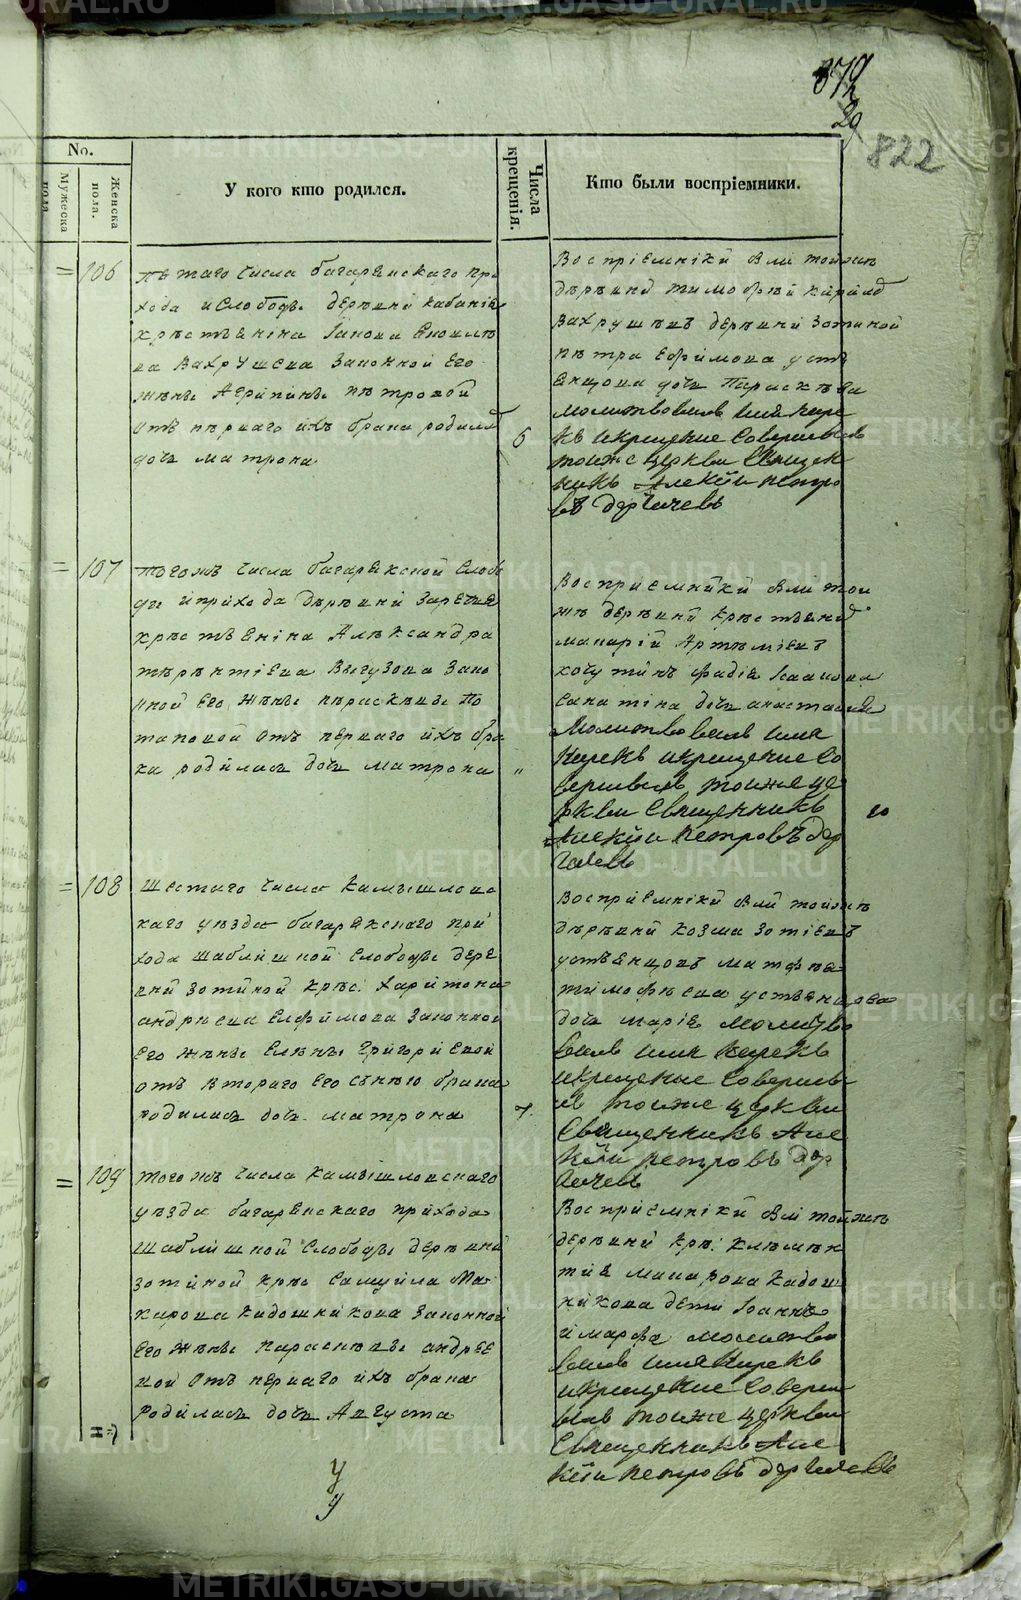 METRIKI.GASO-URAL.RU
379
29
822
No.
Мужеска пола.
Женска пола.
У кого кто родился.
Числа крещенія.
Кто были воспріемники.
= 106
пѣтаго числа багарякскаго при
хода и слободы деревни кабаніѣ
крѣстѣяніна
ва Вахрушева законной его
жѣны Агріпіны пѣтровой
отъ пѣрваго ихъ брака родила
дочь матрона
6
Воспріемніки были тойжъ
дѣрѣвни тимофѣй
Вахрушѣвъ дѣрѣвни зотиной
пѣтра ефимова устѣ
янцова дочь Параскѣва
молитвовалъ имя наре
къ и крещение совершалъ
тойже церкви Священ
никъ Алекѣй петро
въ дергачевъ
= 107
тогожъ числа багарякской слобо
ды и прихода дѣрѣвни зарѣчия
крѣстѣяніна Алѣксандра
тѣрѣнтіева Выгузова зако
нной его жѣны пѣраскѣвы По
таповой отъ пѣрваго ихъ бра
ка родилась дочь матрона
"
Восприемники были той
жъ дѣрѣвни крѣстѣяне
макарій Артѣміевъ
дочь анастасия
Молитвовалъ имя
нарекъ и крещение со
вершалъ тойже це
ркви Священникъ
Алекѣй Петровъ дер
гачевъ
= 108
шестаго числа Камышловс
каго уѣзда багарякскаго при
хода шаблишной слободы дере
вни зотиной крѣс: Харитона
андрѣева Ефимова законной
его жѣны Елѣны григорievой
отъ втораго его сѣнею брака
родилась дочь матрона
7.
Воспріемніки были тойжъ
дѣрѣвни козма зотіевъ
устѣянцовъ матфѣя
тимофѣева устѣянцова
дочь марія молитво
валъ имя нарекъ
и крещение соверша
лъ тойже церкви
Священникъ Але
кѣй петровъ дер
гачевъ
= 109
тогожъ числа камышловскаго
уѣзда багарякскаго прихода
Шаблишной слободы дерѣвни
зотиной крѣс самуила Ма
карова Кадошникова законной
его жѣны параскѣвы андрѣе
вой отъ перваго ихъ брака
родилась дочь Августа
Воспріемніки были тойжъ
дерѣвни крѣ: клѣмѣн
тіѧ макарова кадош
никова дети Іоаннъ
и марфа молитво
валъ имя нарекъ
и крещение соверш
алъ тойже церкви
Священникъ Але
кѣй петровъ дергачевъ
METRIKI.GASO-URAL.RU